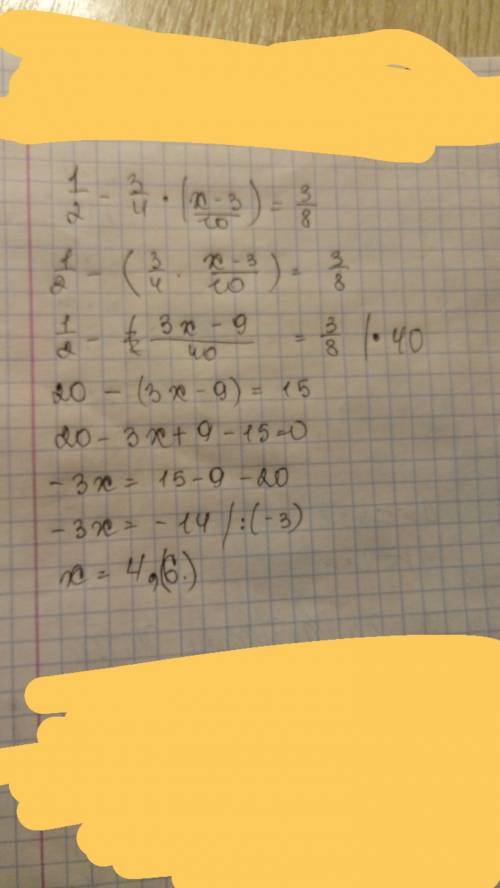 1/2 - 3/4 · (x-3/10) = 3/8
1/2 - (3/4 · x-3/10) = 3/8
1/2 - 3x-9/40 = 3/8 | · 40
20 - (3x-9) = 15
20 - 3x + 9 - 15 = 0
-3x = 15 - 9 - 20
-3x = -14 / : (-3)
x = 4,(6)